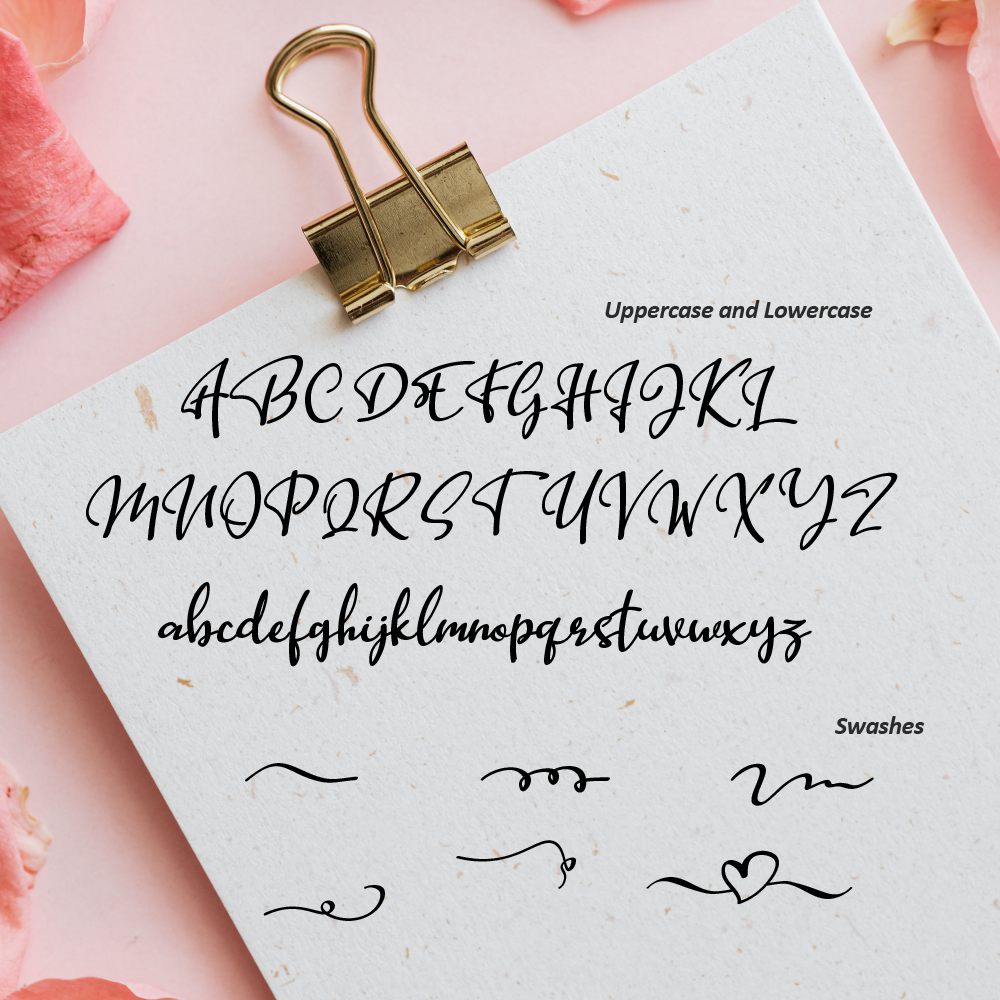 Uppercase and Lowercase
ABCDEFGHIJKL
MNOPQRSTUVWXYZ
abcdefghijklmnopqrstuvwxyz
Swashes